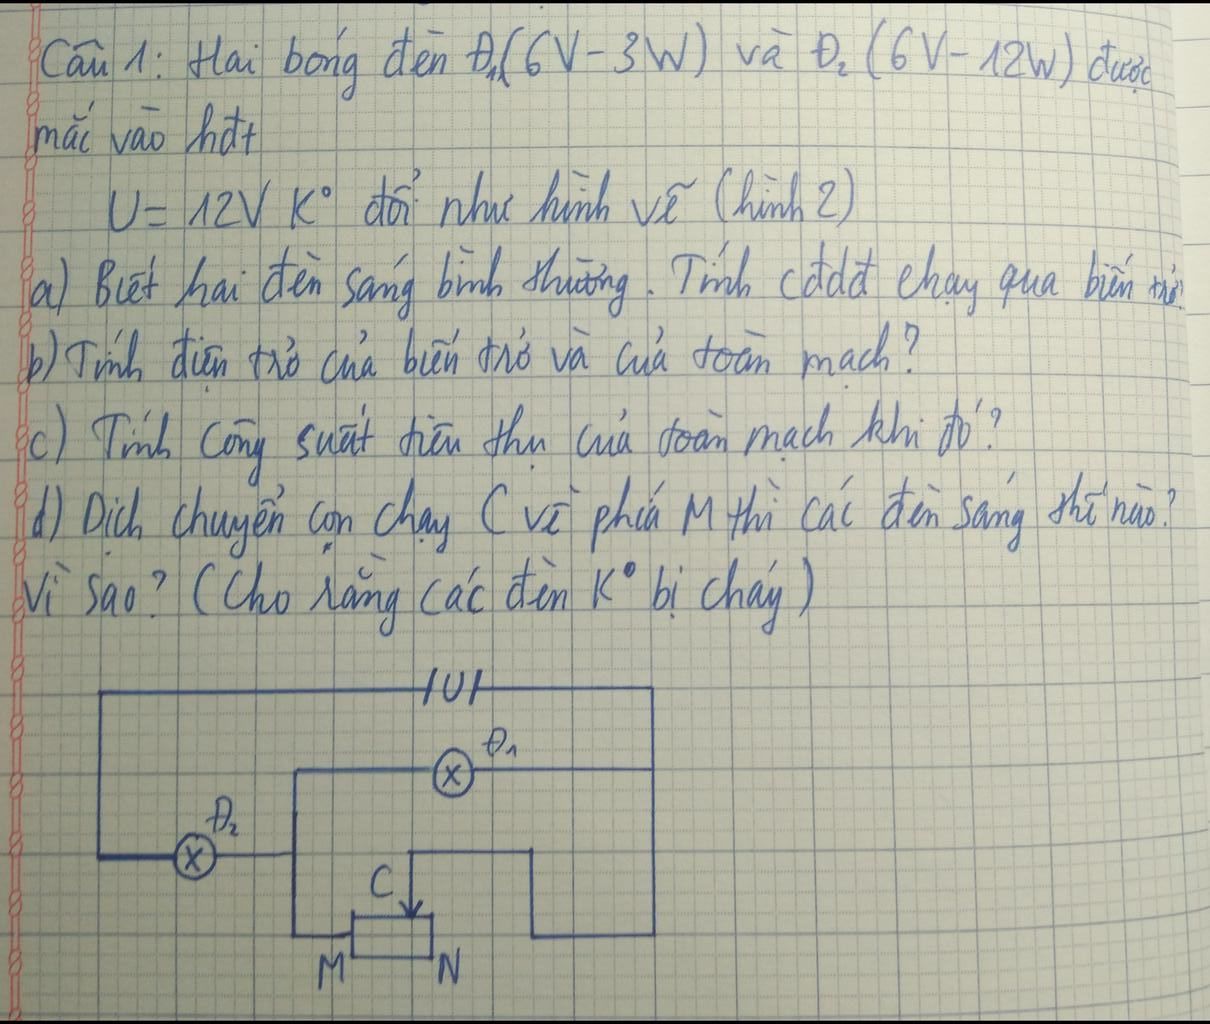 Câu 1: Hai bóng đèn Đ₁(6V-3W) và Đ₂ (6V-12W) được
mắc vào hđt
U= 12V K° đổi như hình vẽ (hình 2)
a) Biết hai đèn sáng bình thường. Tính cđdđ chạy qua biến trở.
b) Tính điện trở của biến trở và của toàn mạch?
c) Tính công suất tiêu thụ của toàn mạch khi đó?
d) Dịch chuyển con chạy C về phía M thì các đèn sáng thế nào?
Vì sao? (Cho rằng các đèn K° bị cháy)
U
Đ₁
Đ₂
C
M N